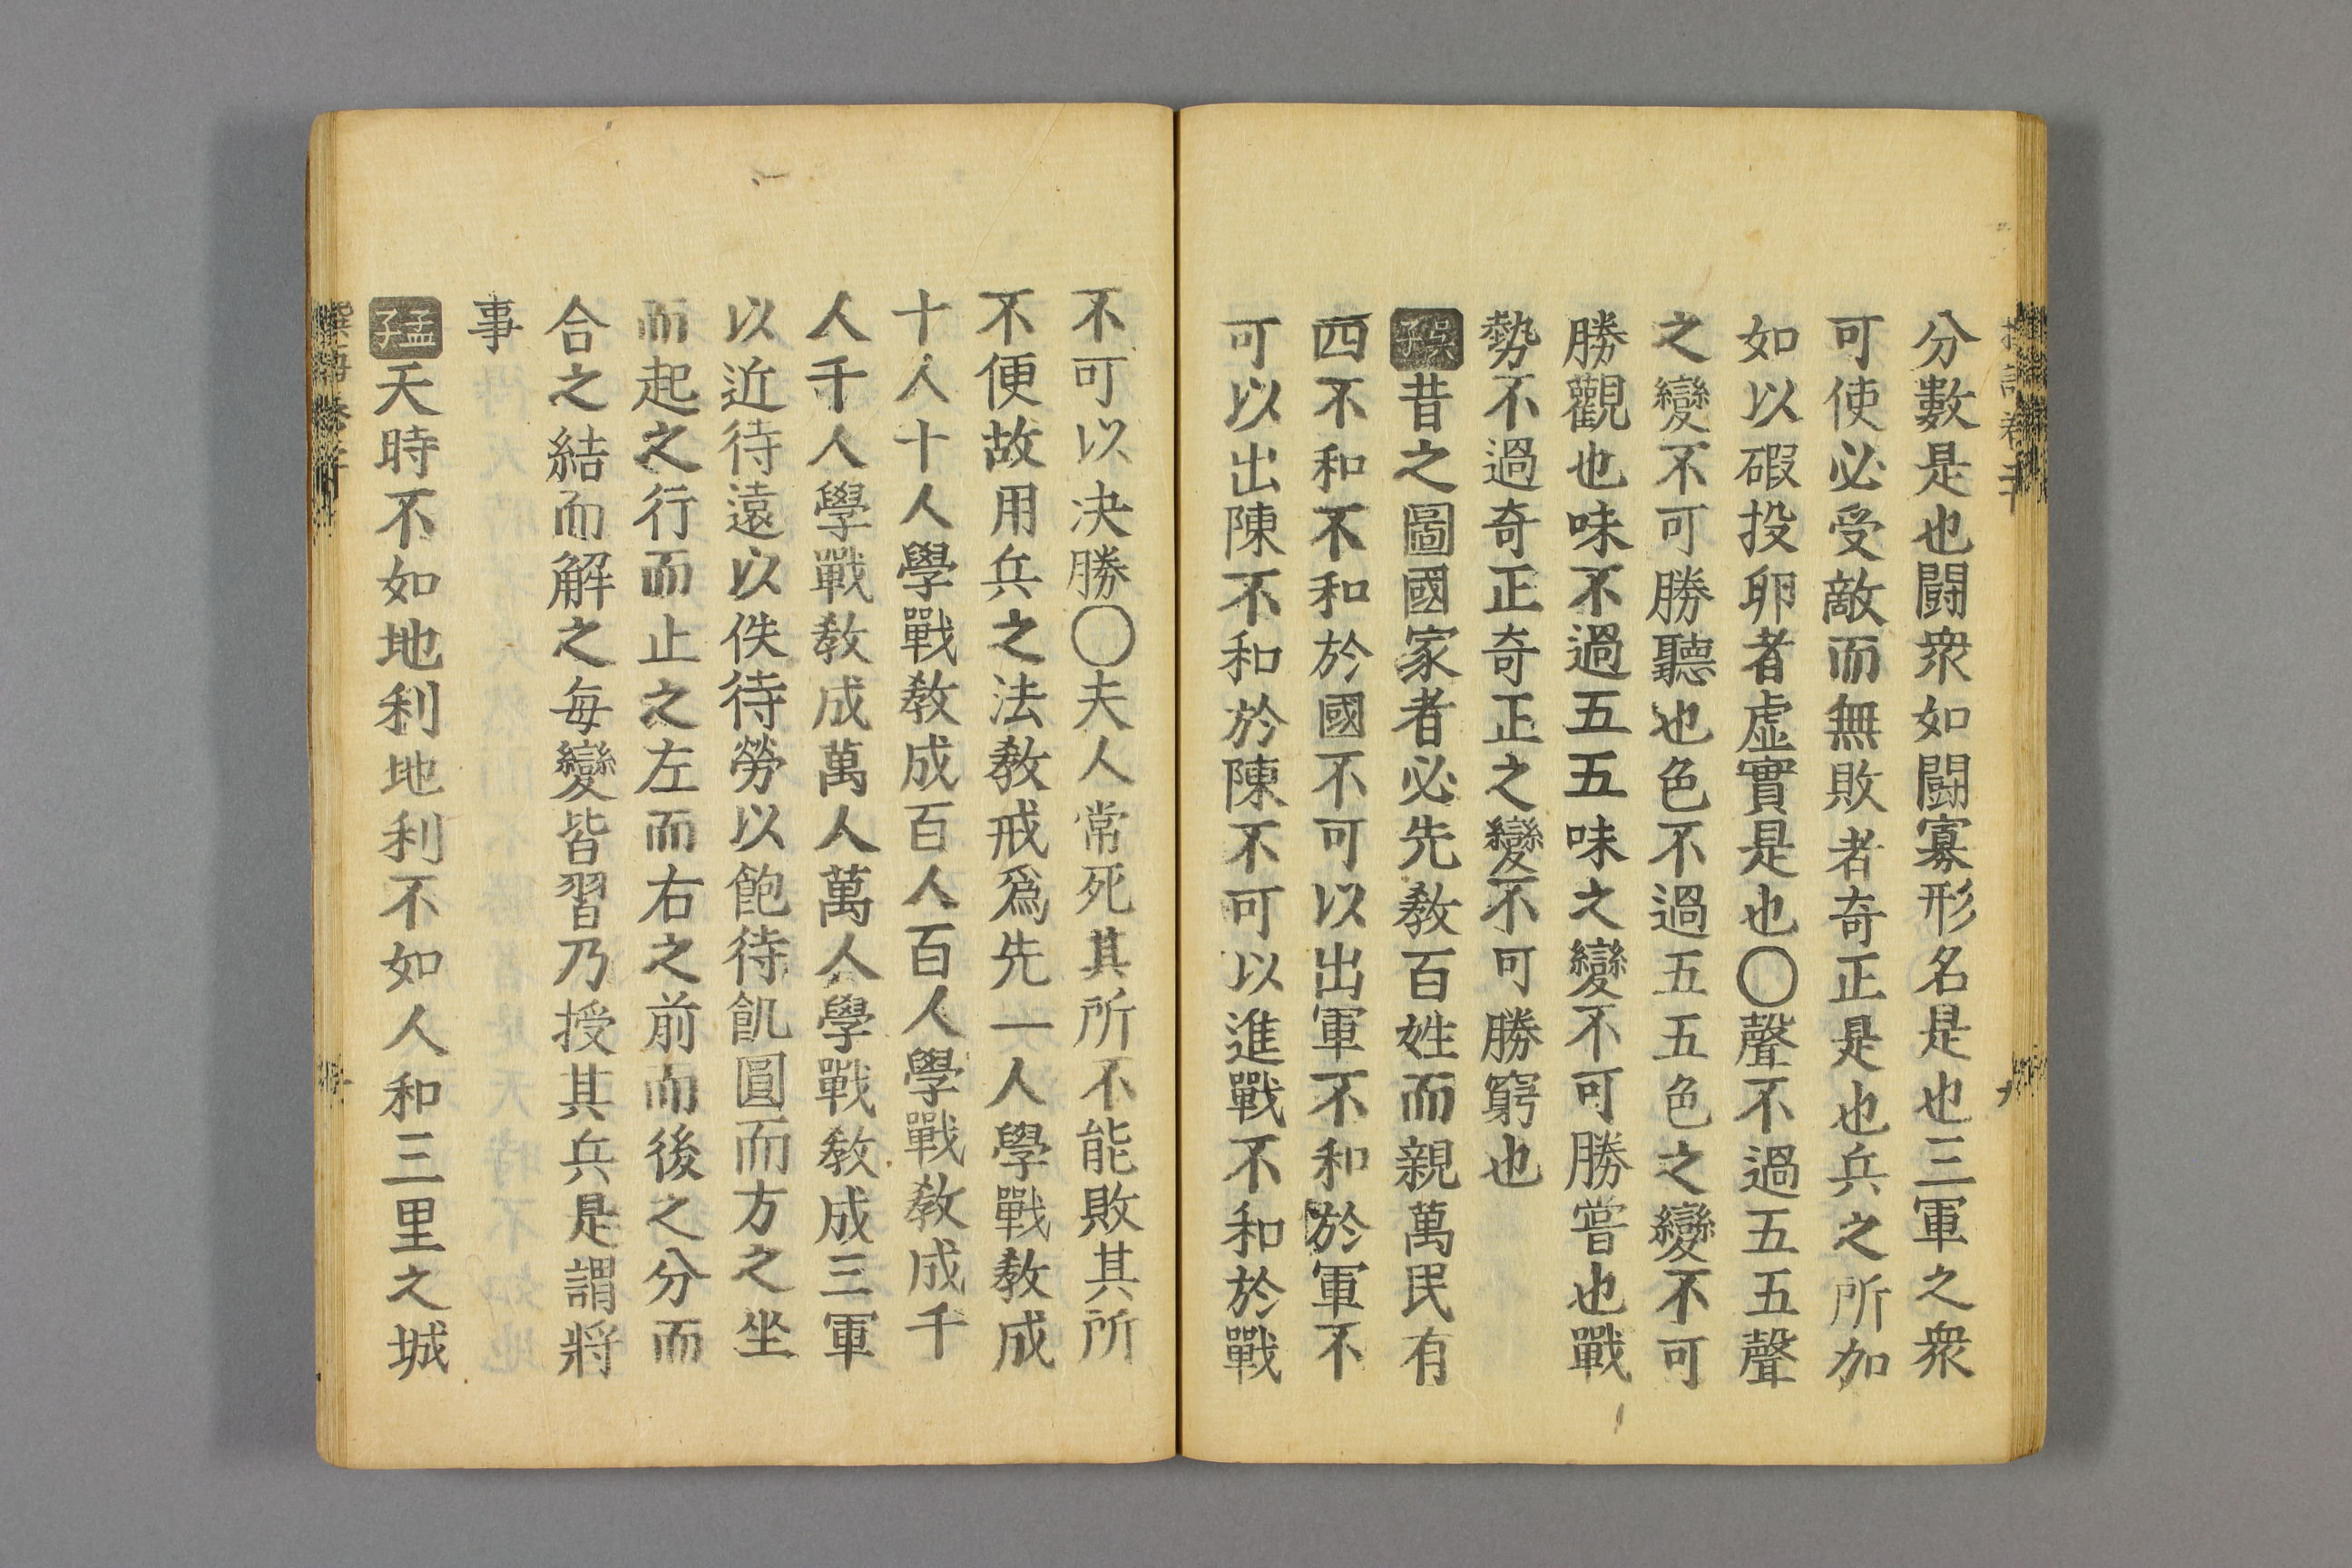 分數是也闘衆如闘寡形名是也三軍之衆
可使必受敵而無敗者奇正是也兵之所加
如以碬投卵者虛實是也〇聲不過五五聲
之變不可勝聽也色不過五五色之變不可
勝觀也味不過五五味之變不可勝嘗也戰
勢不過奇正奇正之變不可勝窮也
吳子昔之圖國家者必先敎百姓而親萬民有
四不和不和於國不可以出軍不和於軍不
可以出陳不和於陳不可以進戰不和於戰
不可以決勝〇夫人常死其所不能敗其所
不便故用兵之法敎戒爲先一人學戰敎成
十人十人學戰敎成百人百人學戰敎成千
人千人學戰敎成萬人萬人學戰敎成三軍
以近待遠以佚待勞以飽待飢圓而方之坐
而起之行而止之左而右之前而後之分而
合之結而解之每變皆習乃授其兵是謂將
事
孟子天時不如地利地利不如人和三里之城